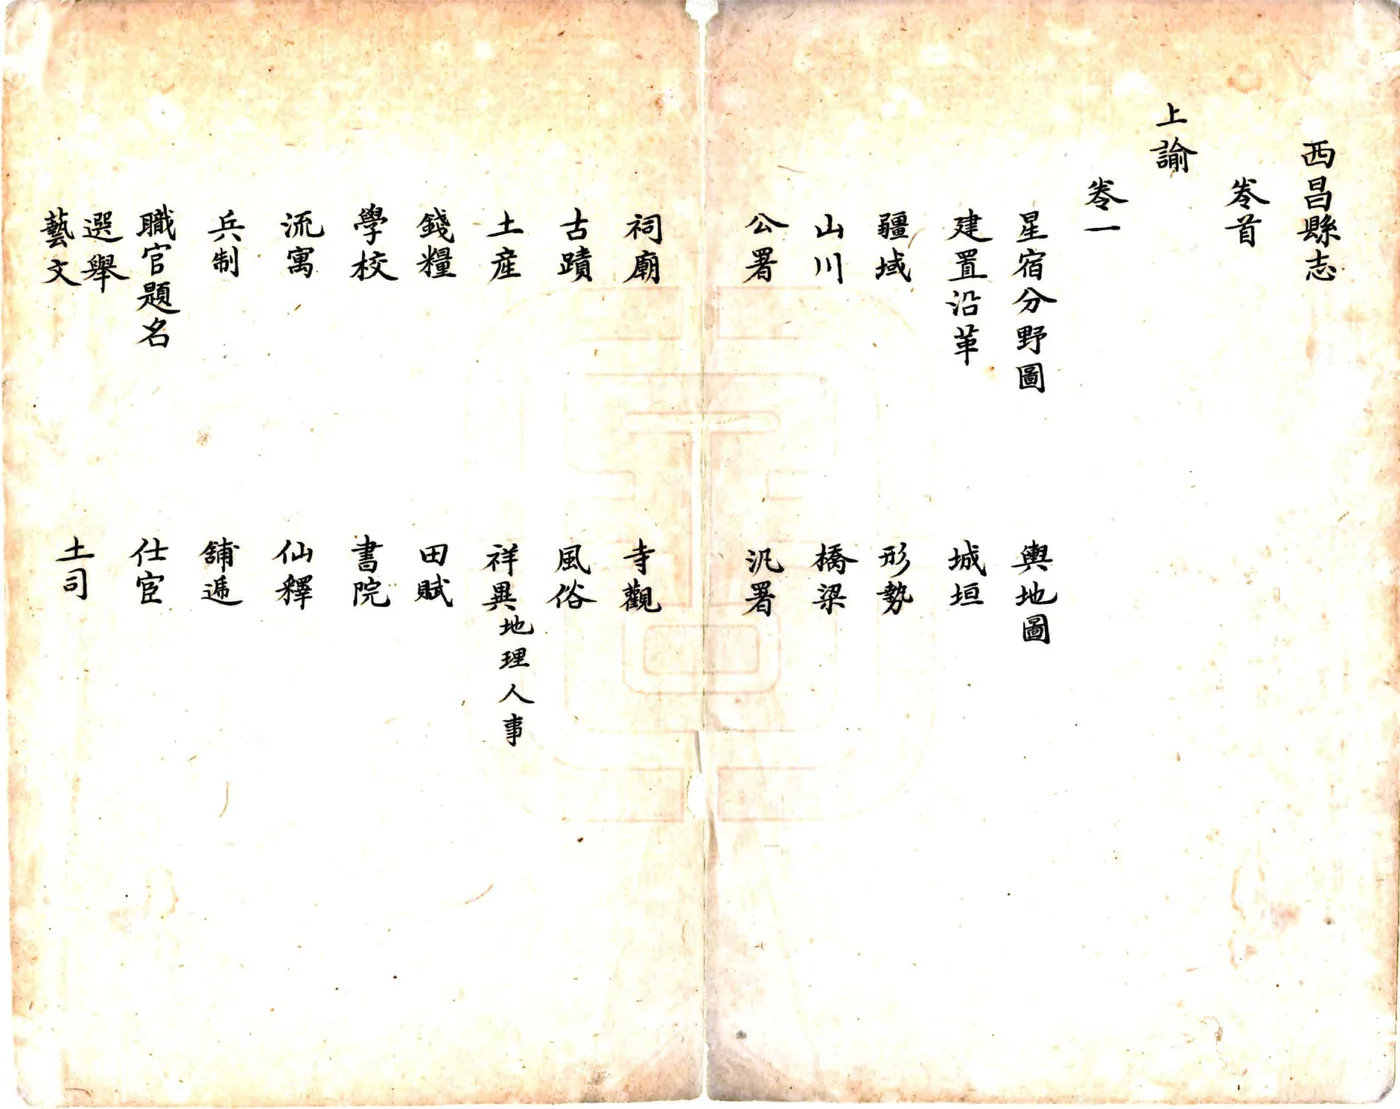 西昌縣志
卷首
上諭
卷一
星宿分野圖 輿地圖
建置沿革 城垣
疆域 形勢
山川 橋梁
公署 汛署
祠廟 寺觀
古蹟 風俗
土産 祥異地理人事
錢糧 田賦
學校 書院
流寓 仙釋
兵制 舖遞
職官題名 仕宦
選舉 土司
藝文